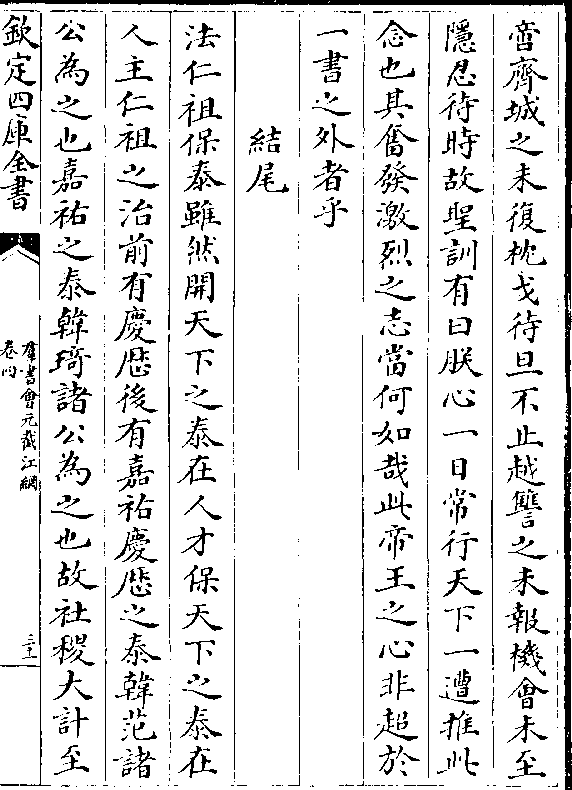 啻齊城之未復枕戈待旦不止越讐之未報機會未至
隱忍待時故聖訓有曰朕心一日常行天下一遭推此
念也其奮發激烈之志當何如哉此帝王之心非超於
一書之外者乎
結尾
法仁祖保泰雖然開天下之泰在人才保天下之泰在
人主仁祖之治前有慶厯後有嘉祐慶厯之泰韓范諸
公為之也嘉祐之泰韓琦諸公為之也故社稷大計至
欽定四庫全書
羣書會元截江網
卷四